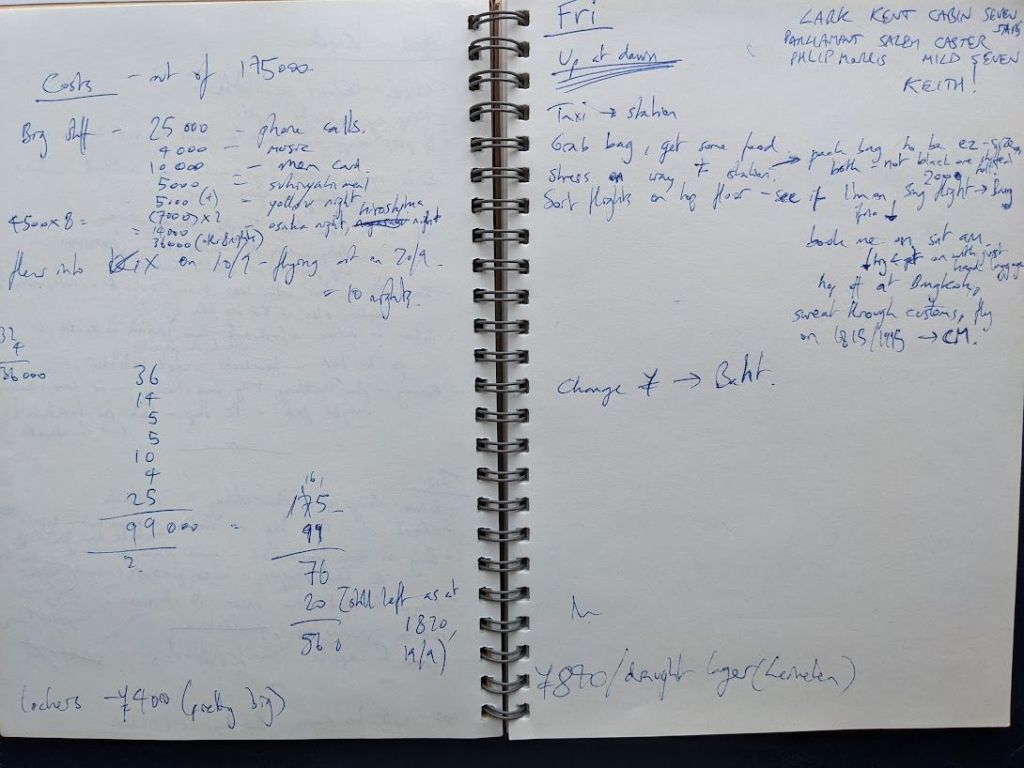 Costs - out of 175000.
Big stuff - 25000 - phone calls.
4000 - music
10000 - mem card.
5000 =
5000 (+) - yellow night
4500 x 8 = (7000) x 2
= 14000 osaka night, hiroshima night
36000 (other 8 nights)
flew into KIX on 10/9 - flying out on 20/9.
= 10 nights.
32
4
36000
36
14
5
5
10
4
25
99000 =
2.
175
99
76
20 (still left as at
1820,
560
19/9)
lockers - ¥400 (pretty big)
Fri
LARK KENT CABIN SEVEN STARS
PARLIAMENT SALEM CASTER
PHILIP MORRIS MILD SEVEN
KEITH!
Up at dawn
Taxi → station
Grab bag, get some food. → pack bag to be ez-
stress on way station. both - not black
Sort flights on top floor - see if flight → Bng
book me on sat am.
on with just hand luggage
hop off at Bangkok,
sweat through customs, fly
on 1815/1995 → CM.
Change ¥ → Baht.
¥840/draught lager (heineken)